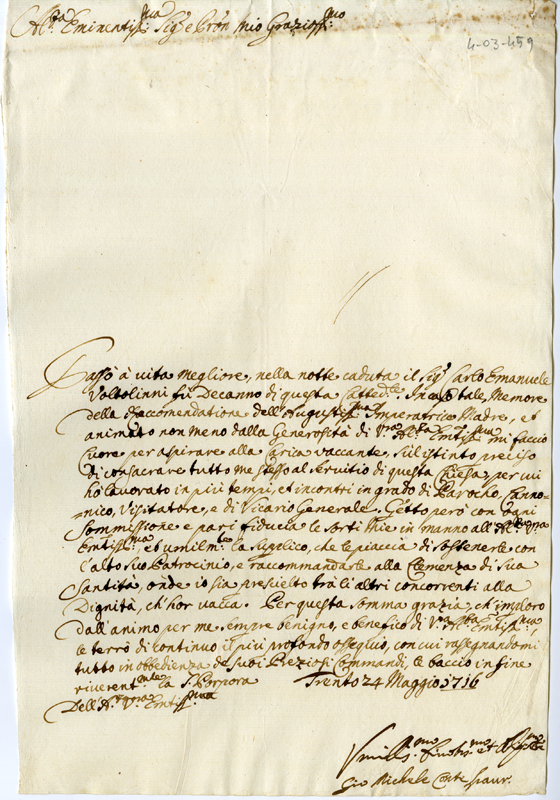 Al.za Eminentiss:ma Sig.r e Pron Mio Grazioss:mo
4-03-459
Passò à vita megliore, nella notte caduta il Sig.r Carlo Emanuele
Voltolinni fù Decanno di questa Catted.le. In caso tale, Memore
della Raccomendatione dell'Augustiss:ma Imperatrice Madre, et
animato non meno dalla Generosità di V.ra Al.za Emtiss:ma mi faccio
cuore per aspirare alla Carica vaccante, sù l'istinto preciso
di consacrare tutto me stesso al servitio di questa Chiesa, per cui
hò lavorato in più tempi, et incontri in grado di Parocho, Canno=
=nico, Visitatore, e di Vicario Generale. Getto però con ogni
Sommissione e pari fiducia le sorti mie in manno all'Al.za V.ra
Emtiss:ma, et umilm.te la supplico, che le piaccia di sostenerle con
l'alto suo Patrocinio, e raccommandarle alla Clemenza di Sua
Santità, onde io sia prescielto trà li altri concorrenti alla
Dignità, ch'hor vacca. Per questa somma grazia, ch'imploro
dall'animo per me sempre benigno, e benefico di V.ra Al.za Emtiss:ma,
le terrò di continuo il più profondo ossequio, con cui rasegnandomi
tutto in obbedienza de suoi Preziosi Commandi, le baccio in fine
riverent.mte la S. Porpora Trento 24 Maggio 1716
Dell'A. V.ra Emtiss:ma
Umiliss.mo et
Gio Michele Conte Spaur.